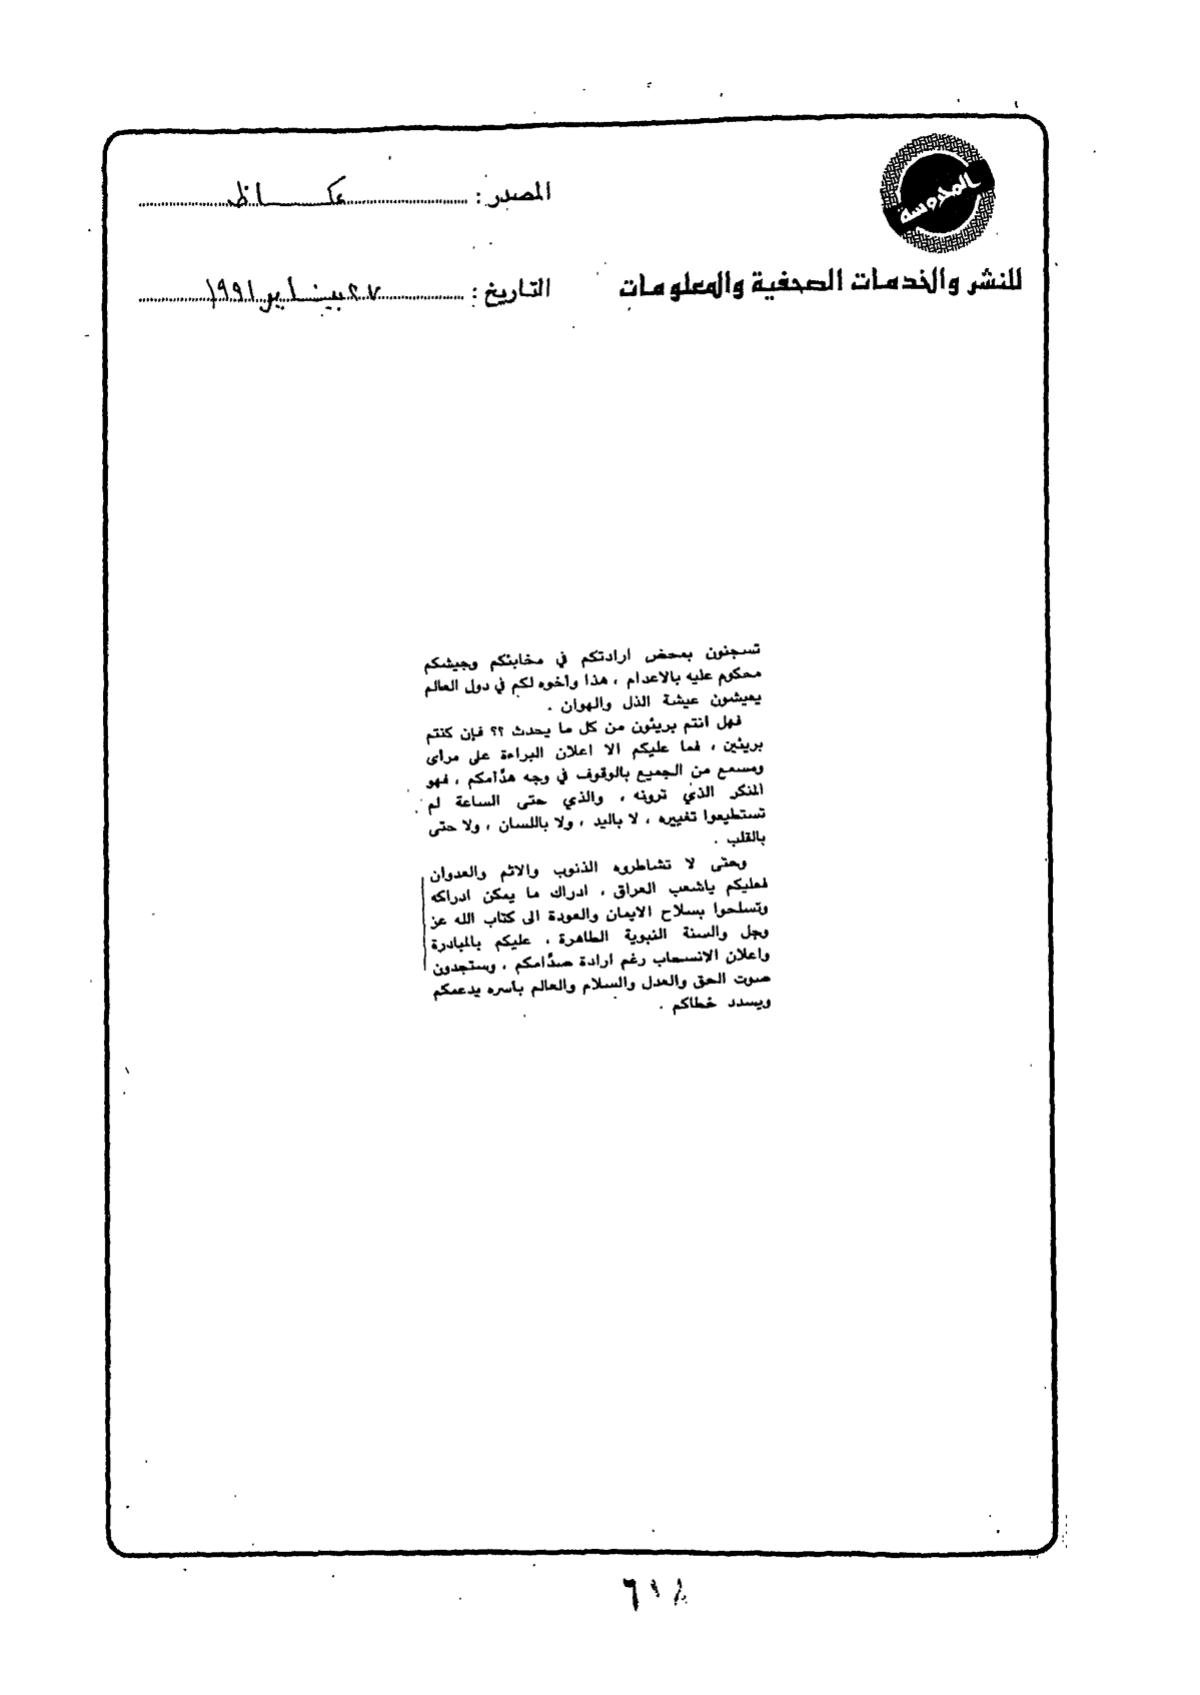 المحروسة
للنشر والخدمات الصحفية والمعلومات
المصدر : عكاظ
التاريخ : ٢٧ يناير ١٩٩١
تسجنون بمحض ارادتكم في مخابئكم وجيشكم
محكوم عليه بالاعدام ، هذا وأخوه لكم في دول العالم
يعيشون عيشة الذل والهوان .
فهل انتم بريئون من كل ما يحدث ؟؟ فإن كنتم
بريئين ، فما عليكم الا اعلان البراءة على مرأى
ومسمع من الجميع بالوقوف في وجه هدّامكم ، فهو
المنكر الذي ترونه ، والذي حتى الساعة لم
تستطيعوا تغييره ، لا باليد ، ولا باللسان ، ولا حتى
بالقلب .
وحتى لا تشاطروه الذنوب والاثم والعدوان
فعليكم ياشعب العراق ، ادراك ما يمكن ادراكه
وتسلحوا بسلاح الايمان والعودة الى كتاب الله عز
وجل والسنة النبوية الطاهرة ، عليكم بالمبادرة
واعلان الانسحاب رغم ارادة صدّامكم ، وستجدون
صوت الحق والعدل والسلام والعالم بأسره يدعمكم
ويسدد خطاكم .
٦١٨